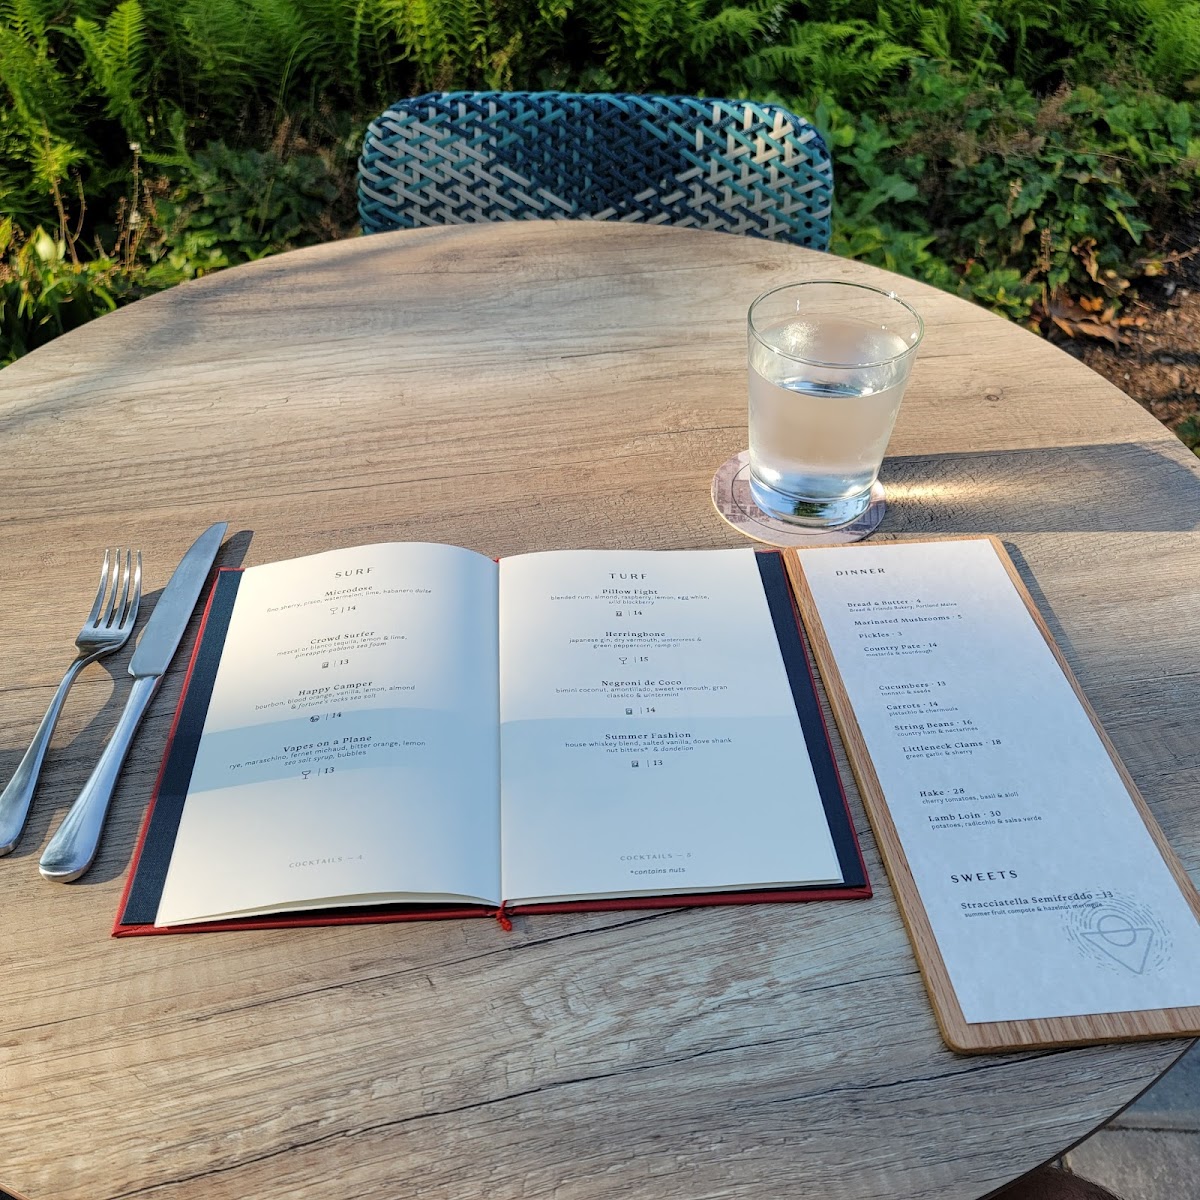 SURF
Microdose
fino sherry, pisco, watermelon, lime, habanero dulse
| 14
Crowd Surfer
mezcal or blanco tequila, lemon & lime,
pineapple-poblano sea foam
| 13
Happy Camper
bourbon, blood orange, vanilla, lemon, almond
& fortune's rocks sea salt
| 14
Vapes on a Plane
rye, maraschino, fernet michaud, bitter orange, lemon
sea salt syrup, bubbles
| 13
COCKTAILS — 4
TURF
Pillow Fight
blended rum, almond, raspberry, lemon, egg white,
wild blackberry
| 14
Herringbone
japanese gin, dry vermouth, watercress &
green peppercorn, ramp oil
| 15
Negroni de Coco
bimini coconut, amontillado, sweet vermouth, gran
classico & wintermint
| 14
Summer Fashion
house whiskey blend, salted vanilla, dove shank
nut bitters* & dandelion
| 13
COCKTAILS — 5
*contains nuts
DINNER
Bread & Butter · 4
Bread & Friends Bakery, Portland Maine
Marinated Mushrooms · 5
Pickles · 3
Country Pate · 14
mostarda & sourdough
Cucumbers · 13
tomato & seeds
Carrots · 14
pistachio & chermoula
String Beans · 16
country ham & nectarines
Littleneck Clams · 18
green garlic & sherry
Hake · 28
cherry tomatoes, basil & aioli
Lamb Loin · 30
potatoes, radicchio & salsa verde
SWEETS
Stracciatella Semifreddo · 13
summer fruit compote & hazelnut meringue